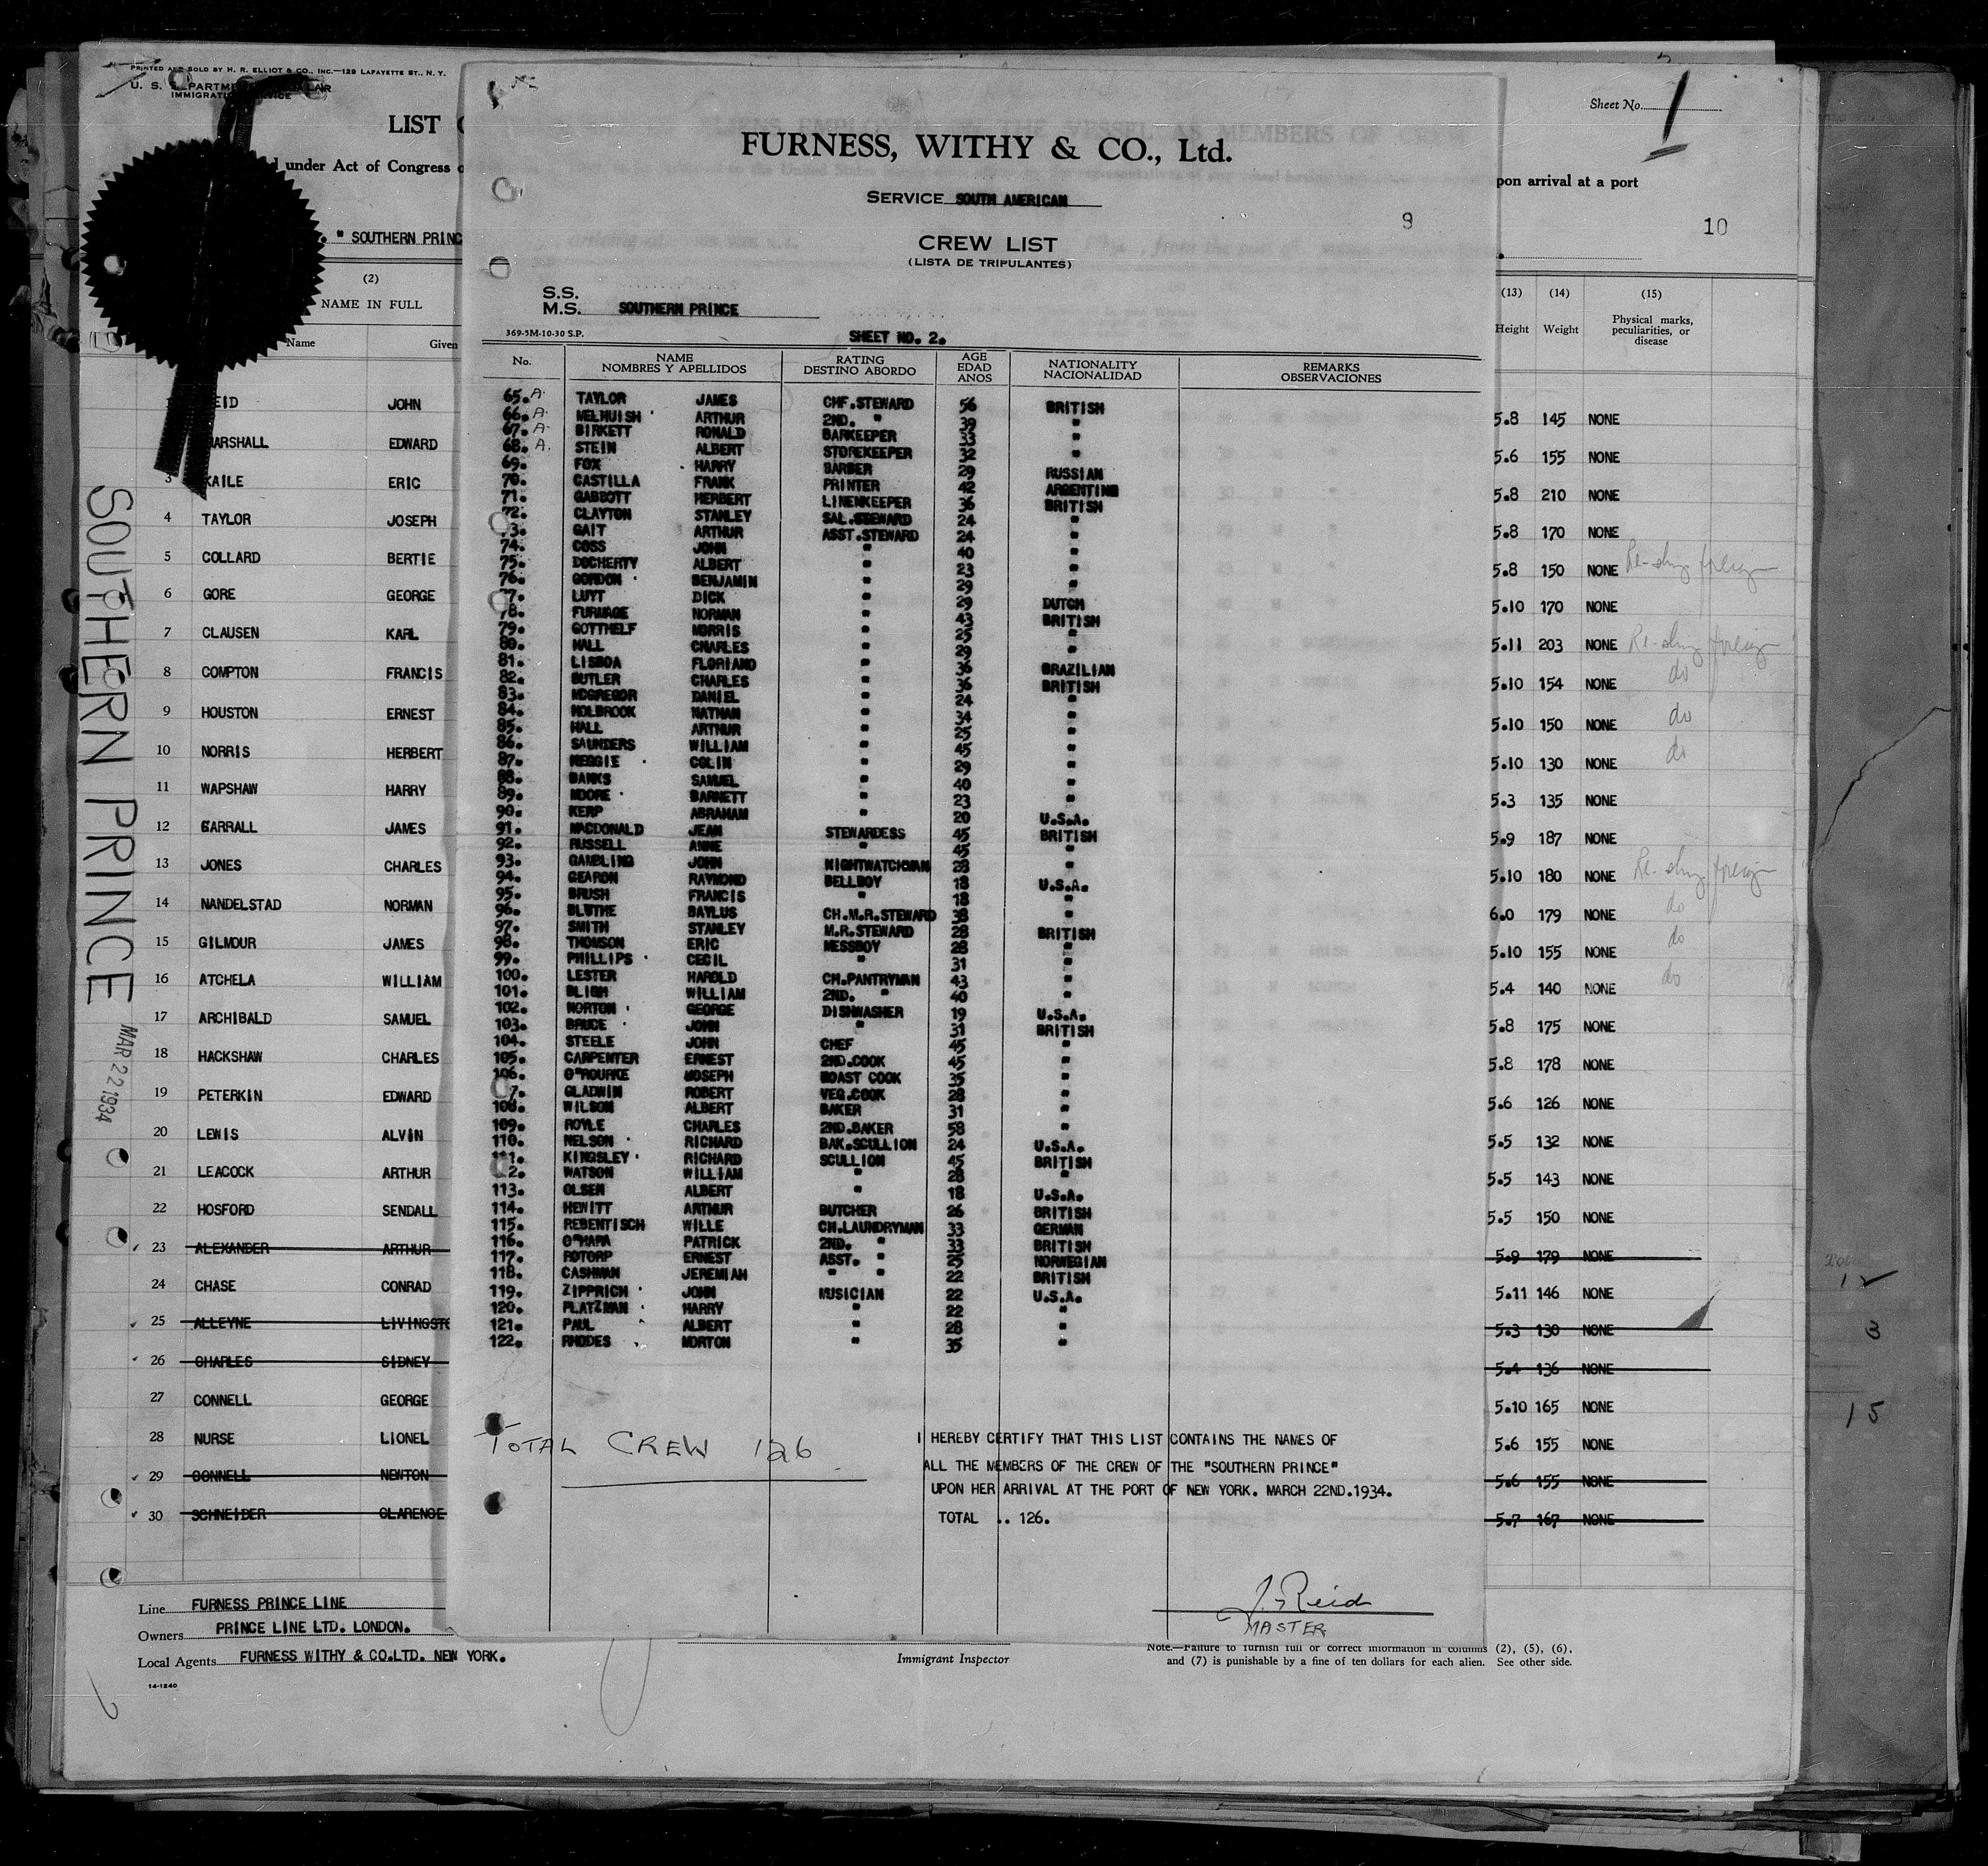 PRINTED AND SOLD BY H. R. ELLIOT & CO., INC.—129 LAFAYETTE ST., N. Y.
U. S.
IMMIGRATION SERVICE
LIST
under Act of Congress
pon arrival at a port
Sheet No. 1
10
" SOUTHERN PRINC
(2)
NAME IN FULL
Name Given
(13) (14) (15)
Height Weight Physical marks, peculiarities, or disease
EID JOHN 5.8 145 NONE
MARSHALL EDWARD 5.6 155 NONE
3 KAILE ERIC 5.8 210 NONE
4 TAYLOR JOSEPH 5.8 170 NONE
5 COLLARD BERTIE 5.8 150 NONE
6 GORE GEORGE 5.10 170 NONE
7 CLAUSEN KARL 5.11 203 NONE
8 COMPTON FRANCIS 5.10 154 NONE do
9 HOUSTON ERNEST 5.10 150 NONE do
10 NORRIS HERBERT 5.10 130 NONE do
11 WAPSHAW HARRY 5.3 135 NONE
12 GARRALL JAMES 5.9 187 NONE
13 JONES CHARLES 5.10 180 NONE
14 NANDELSTAD NORMAN 6.0 179 NONE do
15 GILMOUR JAMES 5.10 155 NONE do
16 ATCHELA WILLIAM 5.4 140 NONE do
17 ARCHIBALD SAMUEL 5.8 175 NONE
18 HACKSHAW CHARLES 5.8 178 NONE
19 PETERKIN EDWARD 5.6 126 NONE
20 LEWIS ALVIN 5.5 132 NONE
21 LEACOCK ARTHUR 5.5 143 NONE
22 HOSFORD SENDALL 5.5 150 NONE
23 ALEXANDER ARTHUR 5.9 179 NONE
24 CHASE CONRAD 5.11 146 NONE
25 ALLEYNE LIVINGSTO 5.3 130 NONE
26 CHARLES SIDNEY 5.4 136 NONE
27 CONNELL GEORGE 5.10 165 NONE
28 NURSE LIONEL 5.6 155 NONE
29 CONNELL NEWTON 5.6 155 NONE
30 SCHNEIDER CLARENCE 5.7 167 NONE
SOUTHERN PRINCE
MAR 22 1934
Line FURNESS PRINCE LINE
Owners PRINCE LINE LTD. LONDON.
Local Agents FURNESS WITHY & CO.LTD. NEW YORK.
14-1240
Immigrant Inspector
Note.—Failure to furnish full or correct information in columns (2), (5), (6),
and (7) is punishable by a fine of ten dollars for each alien. See other side.
FURNESS, WITHY & CO., Ltd.
SERVICE SOUTH AMERICAN
9
CREW LIST
(LISTA DE TRIPULANTES)
S.S.
M.S. SOUTHERN PRINCE
369-5M-10-30 S.P.
SHEET NO. 2.
No. NAME RATING AGE NATIONALITY REMARKS
NOMBRES Y APELLIDOS DESTINO ABORDO EDAD ANOS NACIONALIDAD OBSERVACIONES
65. A. TAYLOR JAMES CHF.STEWARD 56 BRITISH
66. A. MELHUISH ARTHUR 2ND. " 39 "
67. A. BIRKETT RONALD BARKEEPER 33 "
68. A. STEIN ALBERT STOREKEEPER 32 "
69. FOX HARRY BARBER 29 RUSSIAN
70. CASTILLA FRANK PRINTER 42 ARGENTINE
71. GABBOTT HERBERT LINENKEEPER 36 BRITISH
72. CLAYTON STANLEY SAL.STEWARD 24 "
73. GAIT ARTHUR ASST.STEWARD 24 "
74. COSS JOHN " 40 "
75. DOCHERTY ALBERT " 23 "
76. GORDON BENJAMIN " 29 "
77. LUYT DICK " 29 DUTCH
78. FURNAGE NORMAN " 43 BRITISH
79. GOTTHELF MORRIS " 25 "
80. HALL CHARLES " 29 "
81. LISBOA FLORIANO " 36 BRAZILIAN
82. BUTLER CHARLES " 36 BRITISH
83. MCGREGOR DANIEL " 24 "
84. HOLBROOK NATHAN " 34 "
85. HALL ARTHUR " 25 "
86. SAUNDERS WILLIAM " 45 "
87. MEGGIE COLIN " 29 "
88. BANKS SAMUEL " 40 "
89. MOORE BARNETT " 23 "
90. KERP ABRAHAM " 20 U.S.A.
91. MACDONALD JEAN STEWARDESS 45 BRITISH
92. RUSSELL ANNE " 45 "
93. GAMBLING JOHN NIGHTWATCHMAN 28 "
94. GEARON RAYMOND BELLBOY 18 U.S.A.
95. BRUSH FRANCIS " 18 "
96. BLUTHE BAYLUS CH.M.R.STEWARD 38 "
97. SMITH STANLEY M.R.STEWARD 28 BRITISH
98. THOMSON ERIC MESSBOY 28 "
99. PHILLIPS CECIL " 31 "
100. LESTER HAROLD CH.PANTRYMAN 43 "
101. BLIGH WILLIAM 2ND. " 40 "
102. NORTON GEORGE DISHWASHER 19 U.S.A.
103. BRUCE JOHN " 31 BRITISH
104. STEELE JOHN CHEF 45 "
105. CARPENTER ERNEST 2ND.COOK 45 "
106. O"ROURKE MOSEPH ROAST COOK 35 "
7. GLADWIN ROBERT VEG.COOK 28 "
108. WILSON ALBERT BAKER 31 "
109. ROYLE CHARLES 2ND.BAKER 58 "
110. NELSON RICHARD BAK.SCULLION 24 U.S.A.
111. KINGSLEY RICHARD SCULLION 45 BRITISH
2. WATSON WILLIAM " 28 "
113. OLSEN ALBERT " 18 U.S.A.
114. HEWITT ARTHUR BUTCHER 26 BRITISH
115. REBENTISCH WILLE CH.LAUNDRYMAN 33 GERMAN
116. O"HARA PATRICK 2ND. " 33 BRITISH
117. ROTORP ERNEST ASST. " 25 NORWEGIAN
118. CASHMAN JEREMIAH " " 22 BRITISH
119. ZIPPRICH JOHN MUSICIAN 22 U.S.A.
120. PLATZMAN HARRY " 22 "
121. PAUL ALBERT " 28 "
122. RHODES MORTON " 35 "
TOTAL CREW 126
I HEREBY CERTIFY THAT THIS LIST CONTAINS THE NAMES OF
ALL THE MEMBERS OF THE CREW OF THE "SOUTHERN PRINCE"
UPON HER ARRIVAL AT THE PORT OF NEW YORK. MARCH 22ND.1934.
TOTAL .. 126.
J. Reid
MASTER
12
3
15